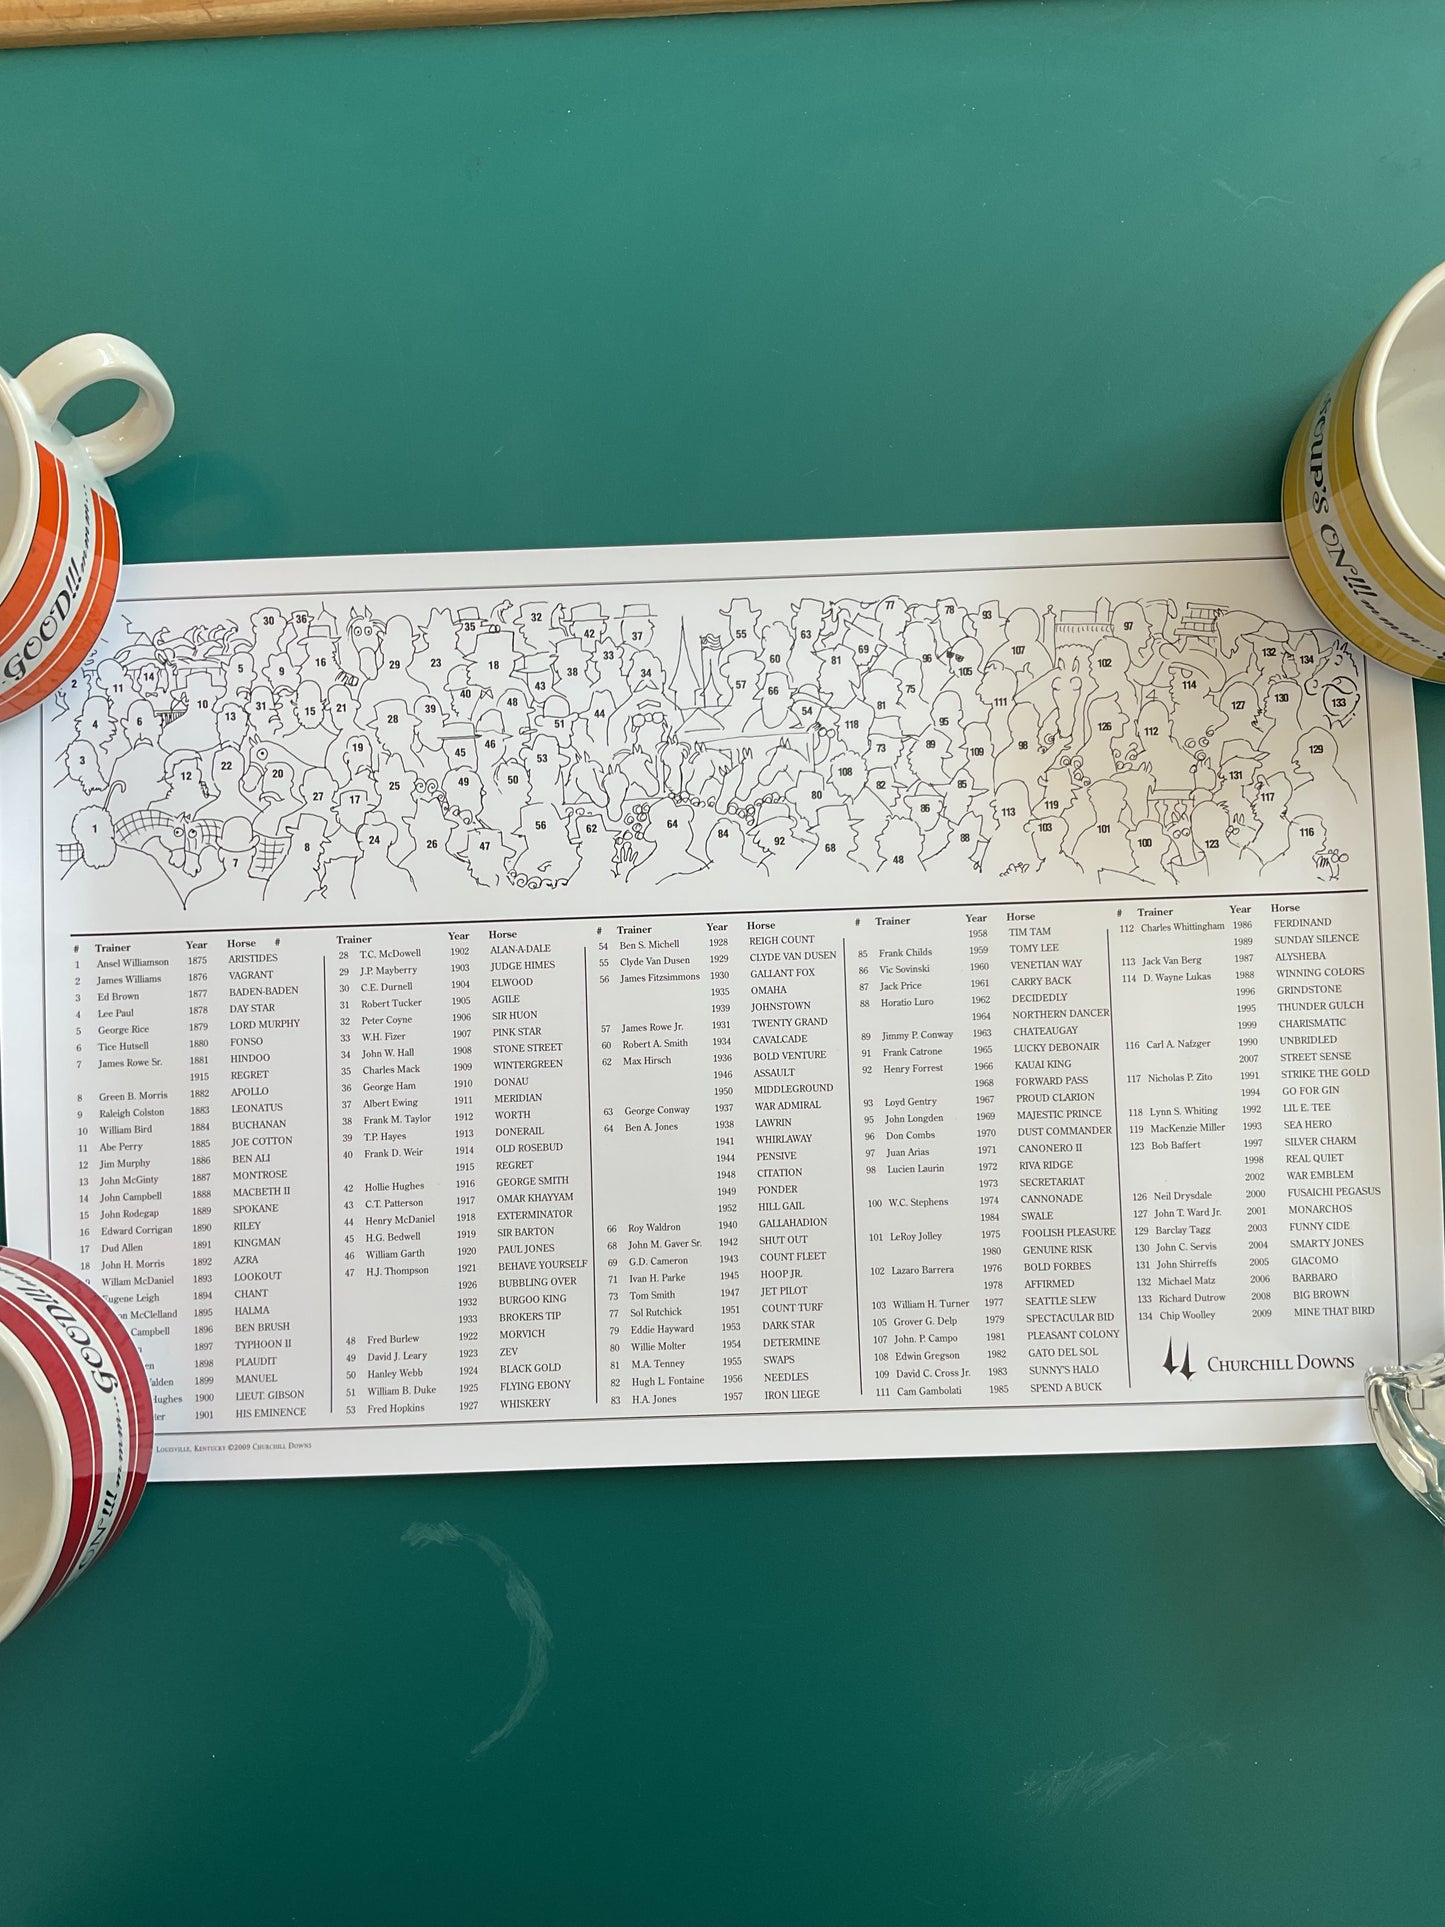 GOOD!!!
SOUP'S ON!!!
30
36
35
32
42
37
55
63
77
78
93
97
2
11
14
5
9
16
29
23
18
38
33
34
60
81
69
96
105
107
102
132
134
4
6
10
13
31
15
21
28
39
40
48
43
51
44
57
66
54
118
81
75
95
111
98
126
112
114
127
130
133
3
12
22
20
19
25
45
46
49
50
53
73
89
109
108
82
85
131
129
27
17
80
86
113
119
117
1
7
8
24
26
47
56
62
64
84
92
68
48
88
103
101
100
123
116
# Trainer Year Horse
1 Ansel Williamson 1875 ARISTIDES
2 James Williams 1876 VAGRANT
3 Ed Brown 1877 BADEN-BADEN
4 Lee Paul 1878 DAY STAR
5 George Rice 1879 LORD MURPHY
6 Tice Hutsell 1880 FONSO
7 James Rowe Sr. 1881 HINDOO
1915 REGRET
8 Green B. Morris 1882 APOLLO
9 Raleigh Colston 1883 LEONATUS
10 William Bird 1884 BUCHANAN
11 Abe Perry 1885 JOE COTTON
12 Jim Murphy 1886 BEN ALI
13 John McGinty 1887 MONTROSE
14 John Campbell 1888 MACBETH II
15 John Rodegap 1889 SPOKANE
16 Edward Corrigan 1890 RILEY
17 Dud Allen 1891 KINGMAN
18 John H. Morris 1892 AZRA
Willam McDaniel 1893 LOOKOUT
Eugene Leigh 1894 CHANT
McClelland 1895 HALMA
Campbell 1896 BEN BRUSH
1897 TYPHOON II
1898 PLAUDIT
1899 MANUEL
Hughes 1900 LIEUT. GIBSON
1901 HIS EMINENCE
# Trainer Year Horse
28 T.C. McDowell 1902 ALAN-A-DALE
29 J.P. Mayberry 1903 JUDGE HIMES
30 C.E. Durnell 1904 ELWOOD
31 Robert Tucker 1905 AGILE
32 Peter Coyne 1906 SIR HUON
33 W.H. Fizer 1907 PINK STAR
34 John W. Hall 1908 STONE STREET
35 Charles Mack 1909 WINTERGREEN
36 George Ham 1910 DONAU
37 Albert Ewing 1911 MERIDIAN
38 Frank M. Taylor 1912 WORTH
39 T.P. Hayes 1913 DONERAIL
40 Frank D. Weir 1914 OLD ROSEBUD
1915 REGRET
42 Hollie Hughes 1916 GEORGE SMITH
43 C.T. Patterson 1917 OMAR KHAYYAM
44 Henry McDaniel 1918 EXTERMINATOR
45 H.G. Bedwell 1919 SIR BARTON
46 William Garth 1920 PAUL JONES
47 H.J. Thompson 1921 BEHAVE YOURSELF
1926 BUBBLING OVER
1932 BURGOO KING
1933 BROKERS TIP
48 Fred Burlew 1922 MORVICH
49 David J. Leary 1923 ZEV
50 Hanley Webb 1924 BLACK GOLD
51 William B. Duke 1925 FLYING EBONY
53 Fred Hopkins 1927 WHISKERY
# Trainer Year Horse
54 Ben S. Michell 1928 REIGH COUNT
55 Clyde Van Dusen 1929 CLYDE VAN DUSEN
56 James Fitzsimmons 1930 GALLANT FOX
1935 OMAHA
1939 JOHNSTOWN
57 James Rowe Jr. 1931 TWENTY GRAND
60 Robert A. Smith 1934 CAVALCADE
62 Max Hirsch 1936 BOLD VENTURE
1946 ASSAULT
1950 MIDDLEGROUND
63 George Conway 1937 WAR ADMIRAL
64 Ben A. Jones 1938 LAWRIN
1941 WHIRLAWAY
1944 PENSIVE
1948 CITATION
1949 PONDER
1952 HILL GAIL
66 Roy Waldron 1940 GALLAHADION
68 John M. Gaver Sr. 1942 SHUT OUT
69 G.D. Cameron 1943 COUNT FLEET
71 Ivan H. Parke 1945 HOOP JR.
73 Tom Smith 1947 JET PILOT
77 Sol Rutchick 1951 COUNT TURF
79 Eddie Hayward 1953 DARK STAR
80 Willie Molter 1954 DETERMINE
81 M.A. Tenney 1955 SWAPS
82 Hugh L. Fontaine 1956 NEEDLES
83 H.A. Jones 1957 IRON LIEGE
# Trainer Year Horse
1958 TIM TAM
85 Frank Childs 1959 TOMY LEE
86 Vic Sovinski 1960 VENETIAN WAY
87 Jack Price 1961 CARRY BACK
88 Horatio Luro 1962 DECIDEDLY
1964 NORTHERN DANCER
89 Jimmy P. Conway 1963 CHATEAUGAY
91 Frank Catrone 1965 LUCKY DEBONAIR
92 Henry Forrest 1966 KAUAI KING
1968 FORWARD PASS
93 Loyd Gentry 1967 PROUD CLARION
95 John Longden 1969 MAJESTIC PRINCE
96 Don Combs 1970 DUST COMMANDER
97 Juan Arias 1971 CANONERO II
98 Lucien Laurin 1972 RIVA RIDGE
1973 SECRETARIAT
100 W.C. Stephens 1974 CANNONADE
1984 SWALE
101 LeRoy Jolley 1975 FOOLISH PLEASURE
1980 GENUINE RISK
102 Lazaro Barrera 1976 BOLD FORBES
1978 AFFIRMED
103 William H. Turner 1977 SEATTLE SLEW
105 Grover G. Delp 1979 SPECTACULAR BID
107 John. P. Campo 1981 PLEASANT COLONY
108 Edwin Gregson 1982 GATO DEL SOL
109 David C. Cross Jr. 1983 SUNNY'S HALO
111 Cam Gambolati 1985 SPEND A BUCK
# Trainer Year Horse
112 Charles Whittingham 1986 FERDINAND
1989 SUNDAY SILENCE
113 Jack Van Berg 1987 ALYSHEBA
114 D. Wayne Lukas 1988 WINNING COLORS
1996 GRINDSTONE
1995 THUNDER GULCH
1999 CHARISMATIC
116 Carl A. Nafzger 1990 UNBRIDLED
2007 STREET SENSE
117 Nicholas P. Zito 1991 STRIKE THE GOLD
1994 GO FOR GIN
118 Lynn S. Whiting 1992 LIL E. TEE
119 MacKenzie Miller 1993 SEA HERO
123 Bob Baffert 1997 SILVER CHARM
1998 REAL QUIET
2002 WAR EMBLEM
126 Neil Drysdale 2000 FUSAICHI PEGASUS
127 John T. Ward Jr. 2001 MONARCHOS
129 Barclay Tagg 2003 FUNNY CIDE
130 John C. Servis 2004 SMARTY JONES
131 John Shirreffs 2005 GIACOMO
132 Michael Matz 2006 BARBARO
133 Richard Dutrow 2008 BIG BROWN
134 Chip Woolley 2009 MINE THAT BIRD
CHURCHILL DOWNS
LOUISVILLE, KENTUCKY ©2009 CHURCHILL DOWNS
GOOD!!!